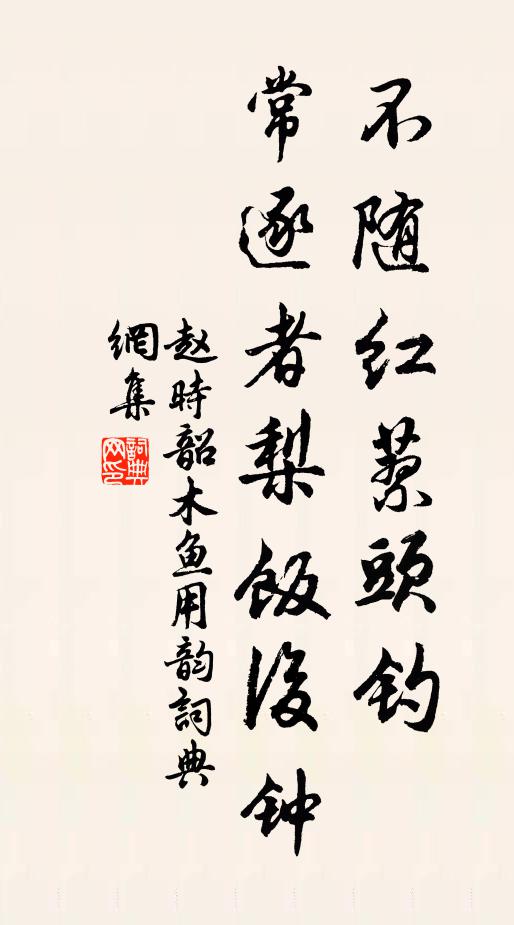 不随红蓼頭钓
常逐者梨饭後钟
赵時韶木鱼用韵詞典
網集
詞典网印